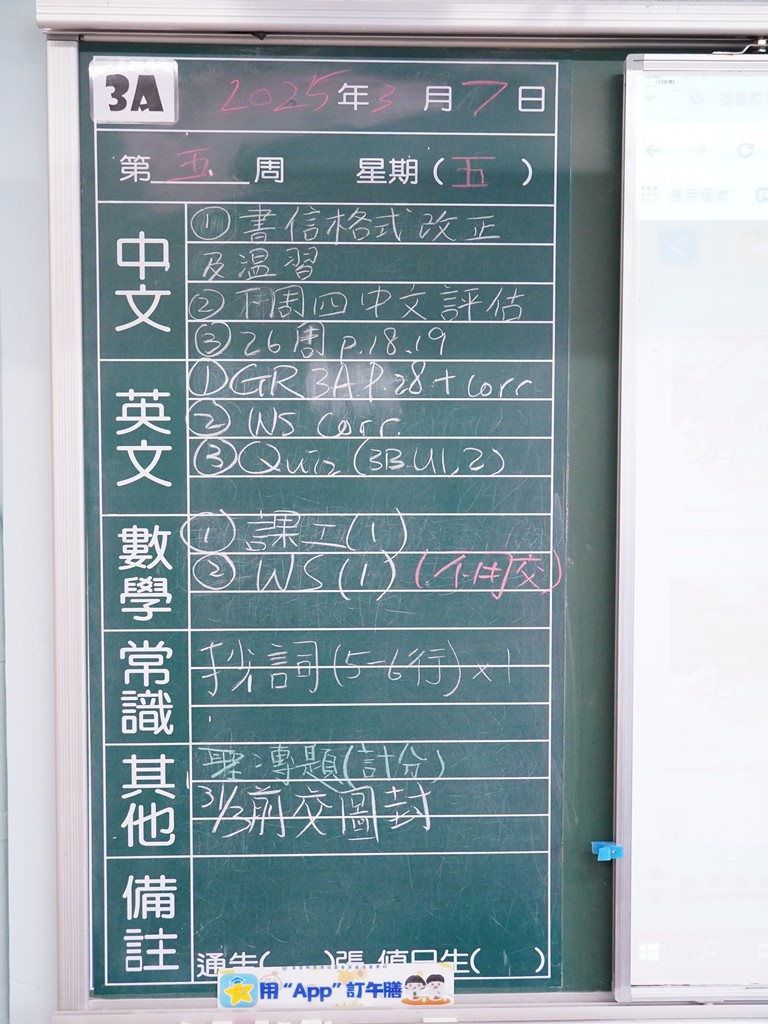 3A
2025年3月7日
第五周 星期(五)
中文
①書信格式改正
及温習
②下周四中文評估
③26周 p.18.19
英文
①GR 3A P.28 + corr
② WS corr.
③Quiz (3B U1,2)
數學
①課工(1)
② WS (1) (不用交)
常識
抄詞(5-6行)×1
其他
聖:專題(計分)
31/3前交圖封
備註
通告( )張 值日生( )
用“App”訂午膳